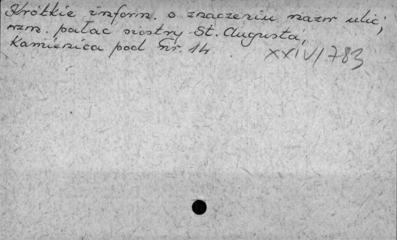 Krótkie inform. o znaczeniu nazw ulic,
wzm. pałac siostry St. Augusta,
Kamienica pod Nr. 14
XXIV/783